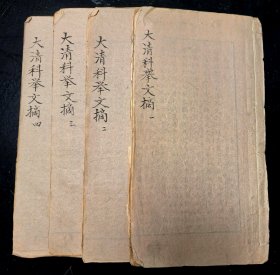 大清科举文摘 一
大清科举文摘 二
大清科举文摘 三
大清科举文摘 四